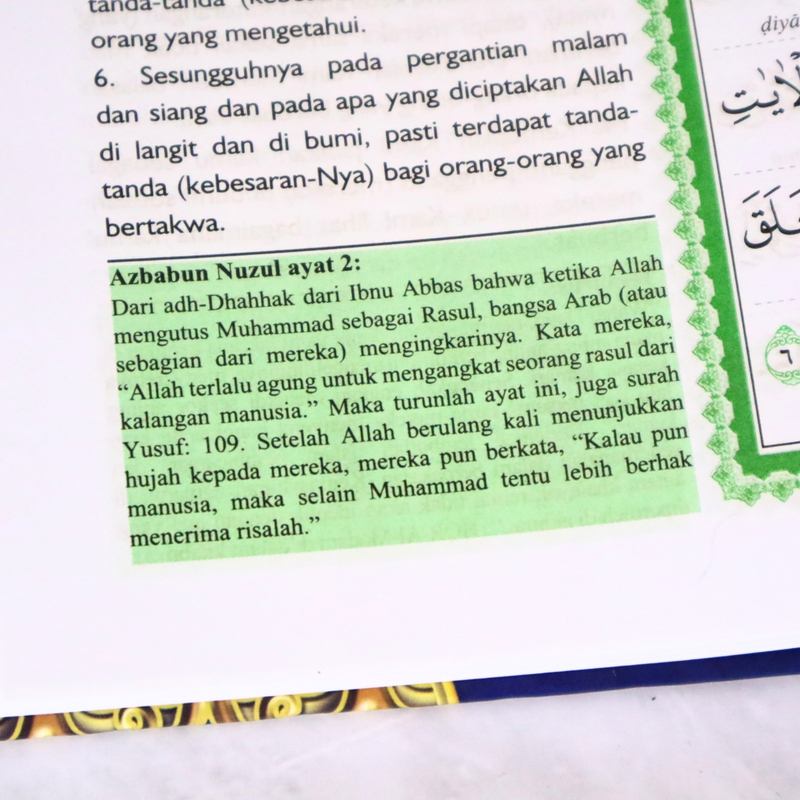 tanda-tanda
orang yang mengetahui.
6. Sesungguhnya pada pergantian malam
dan siang dan pada apa yang diciptakan Allah
di langit dan di bumi, pasti terdapat tanda-
tanda (kebesaran-Nya) bagi orang-orang yang
bertakwa.
Azbabun Nuzul ayat 2:
Dari adh-Dhahhak dari Ibnu Abbas bahwa ketika Allah
mengutus Muhammad sebagai Rasul, bangsa Arab (atau
sebagian dari mereka) mengingkarinya. Kata mereka,
“Allah terlalu agung untuk mengangkat seorang rasul dari
kalangan manusia.” Maka turunlah ayat ini, juga surah
Yusuf: 109. Setelah Allah berulang kali menunjukkan
hujah kepada mereka, mereka pun berkata, “Kalau pun
manusia, maka selain Muhammad tentu lebih berhak
menerima risalah.”
ḍiyā
٦